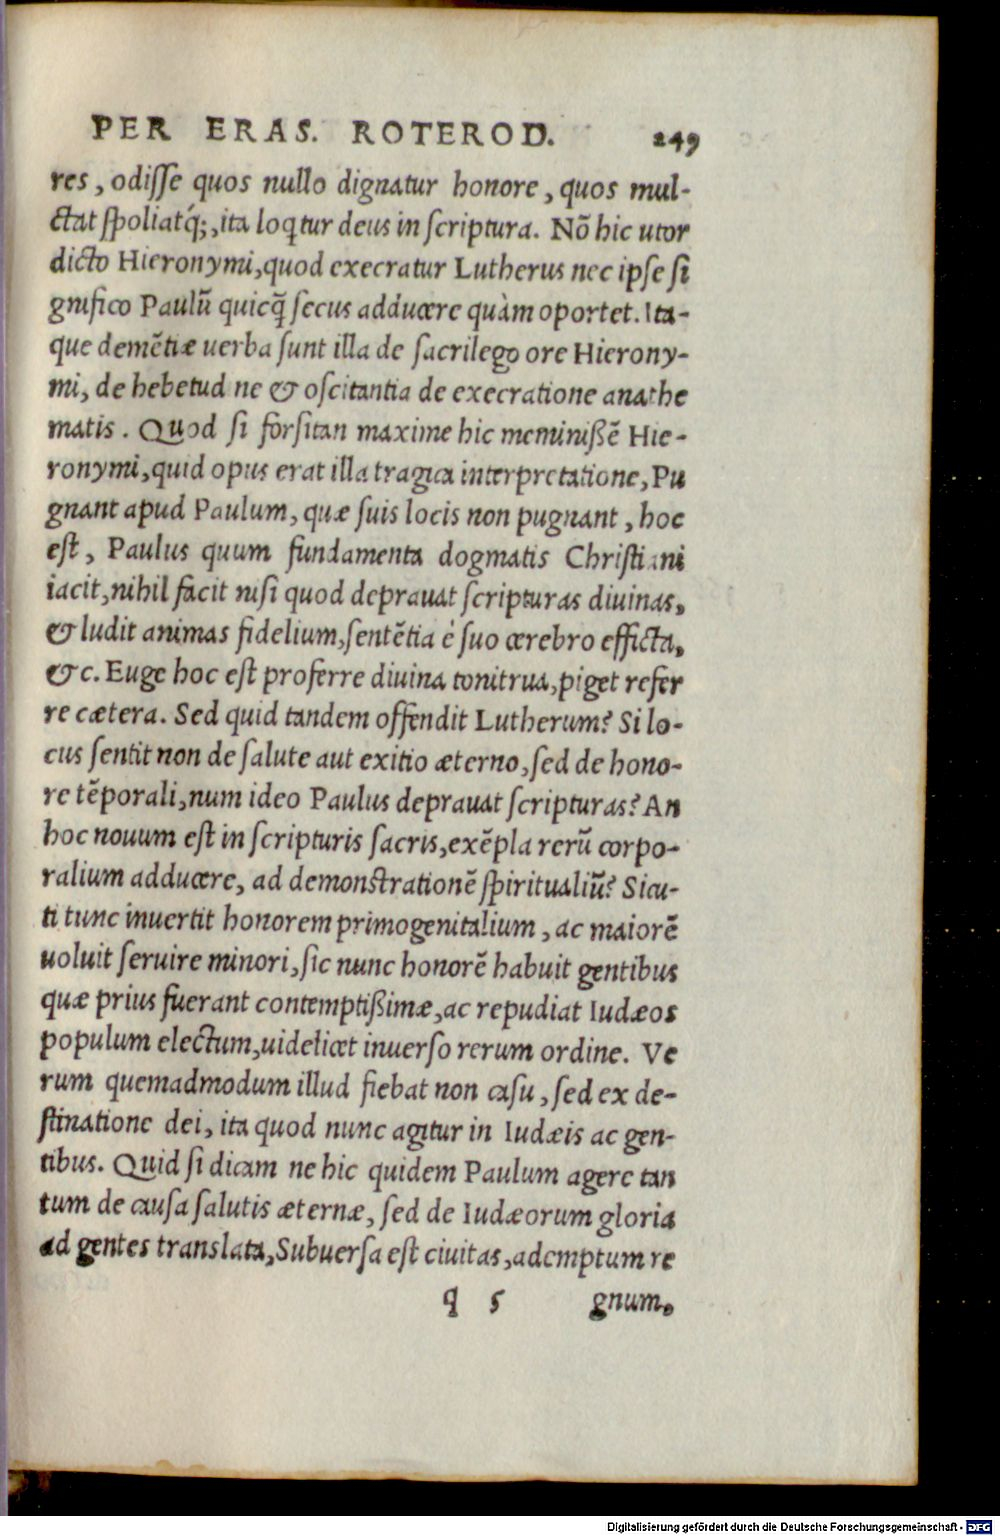 PER ERAS. ROTEROD. 249
res, odisse quos nullo dignatur honore, quos mul-
ctat spoliatq́;, ita loqtur deus in scriptura. Nō hic utor
dicto Hieronymi, quod execratur Lutherus nec ipse si
gnifico Paulū quicq̄ secus adducere quàm oportet. Ita-
que demētiæ uerba sunt illa de sacrilego ore Hierony-
mi, de hebetud ne & oscitantia de execratione anathe
matis. Quod si forsitan maxime hic meminißē Hie-
ronymi, quid opus erat illa tragica interpretatione, Pu
gnant apud Paulum, quæ suis locis non pugnant, hoc
est, Paulus quum fundamenta dogmatis Christiani
iacit, nihil facit nisi quod deprauat scripturas diuinas,
& ludit animas fidelium, sentētia è suo cerebro efficta,
&c. Euge hoc est proferre diuina tonitrua, piget refer
re cætera. Sed quid tandem offendit Lutherum? Si lo-
cus sentit non de salute aut exitio æterno, sed de hono-
re tēporali, num ideo Paulus deprauat scripturas? An
hoc nouum est in scripturis sacris, exēpla rerū corpo-
ralium adducere, ad demonstrationē spiritualiū? Sicu-
ti tunc inuertit honorem primogenitalium, ac maiorē
uoluit seruire minori, sic nunc honorē habuit gentibus
quæ prius fuerant contemptißimæ, ac repudiat Iudæos
populum electum, uidelicet inuerso rerum ordine. Ve
rum quemadmodum illud fiebat non casu, sed ex de-
stinatione dei, ita quod nunc agitur in Iudæis ac gen-
tibus. Quid si dicam ne hic quidem Paulum agere tan
tum de causa salutis æternæ, sed de Iudæorum gloria
ad gentes translata, Subuersa est ciuitas, ademptum re
q 5 gnum,
Digitalisierung gefördert durch die Deutsche Forschungsgemeinschaft - DFG